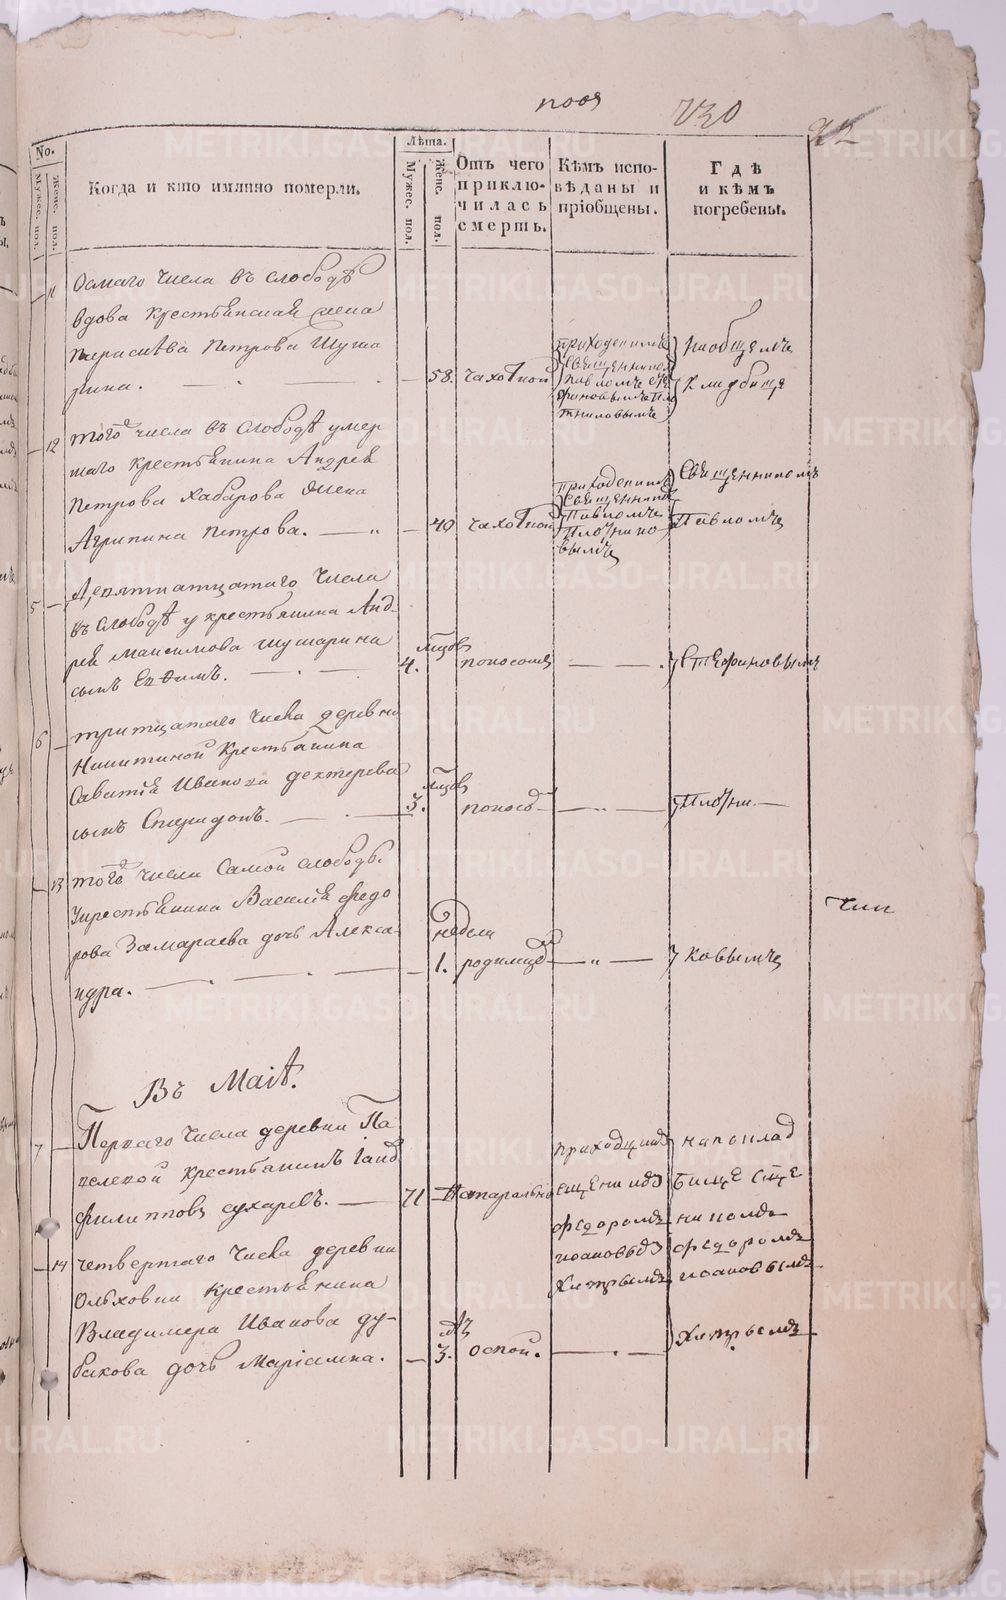 730
No.
Мужес. пол.
Женс. пол.
Когда и кто имянно померли.
Лѣта.
Мужес. пол.
Женс. пол.
Отъ чего
приклю-
чилась
смерть.
Кѣмъ испо-
вѣданы и
пріобщены.
Гдѣ
и кѣмъ
погребены.
11
Осмаго числа въ слободѣ
вдова крестьянская жена
Петрова Шуша
рина.
58. чахоткой
приходскимъ
священником
павломъ
на общемъ
кладбище
12
того числа въ слободѣ умер
шаго крестьянина Андрея
Петрова Хабарова жена
Агрипина Петрова. — „
40 чахоткой
приходскимъ
священником
Павломъ
Плотнико
вымъ
священникомъ
Павломъ
5
Девятнатцатаго числа
въ слободѣ у крестьянина Анд-
рея Максимова Шушарина
сынъ Ефимъ.
4. поносомъ
Стефановымъ
6
тритцатаго числа деревни
Никитиной крестьянина
Саватія Иванова дехтерева
сынъ Спиридонъ.
3. поносо
Плотни-
13
того числа самой слободы
крестьянина Василія Федо
рова Замараева дочь Алекса-
ндра.
неделя
1. родимцо — „ —
ковымъ
Въ Маіѣ.
7
Перваго числа деревни Па
крестьянинъ
филипповъ сухаревъ.
71
приходскимъ
федоромъ
иоановымъ
Хитрымъ
на клад
бище свяще
никомъ
федоромъ
иоановымъ
Хитрымъ
14
четвертаго числа деревни
Ольховки крестьянина
Владимера Иванова ду-
бакова дочь Маріамна.
3. оспой.
METRIKI.GASO-URAL.RU